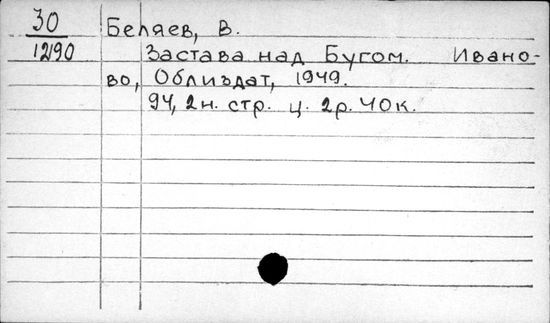 30
12190
Беляев, В.
Застава над Бугом. Ивано-
во, Облиздат, 1949.
94, 2н. стр. ц. 2р. 40к.